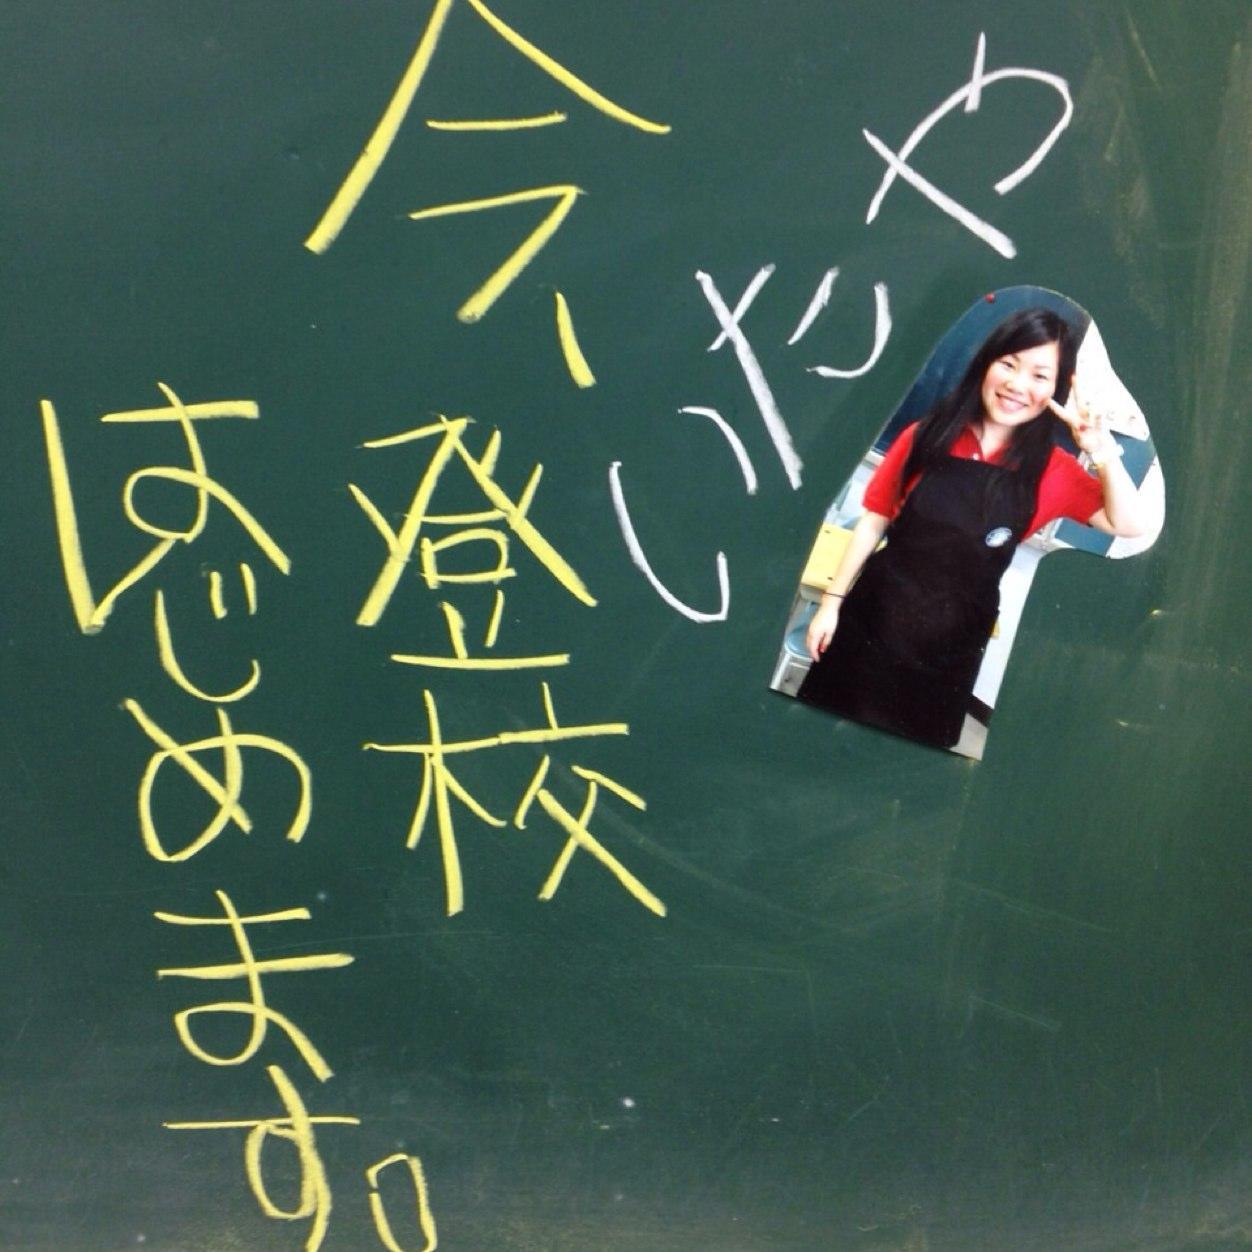 やりたい
今、
登校
はじめます。